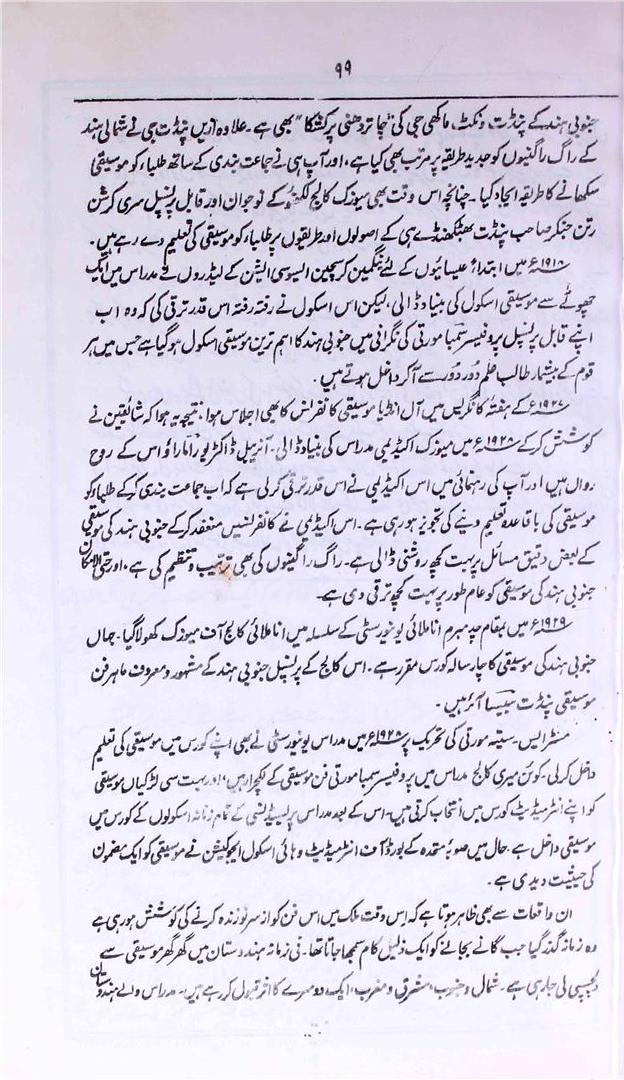 ۹۹
جنوبی ہند کے پنڈت ونکٹ ماکھی جی کی "چاتر دھنی پرکشکا" بھی ہے۔ علاوہ ازیں پنڈت جی نے شمالی ہند
کے راگ راگنیوں کو جدید طریقہ پر مرتب بھی کیا ہے، اور آپ ہی نے جماعت بندی کے ساتھ طلباء کو موسیقی
سکھانے کا طریقہ ایجاد کیا۔ چنانچہ اس وقت بھی میوزک کالج لکھنؤ کے نوجوان اور قابل پرنسپل سری کرشن
رتن جنکر صاحب پنڈت بھٹکھنڈے ہی کے اصولوں اور طریقوں پر طلباء کو موسیقی کی تعلیم دے رہے ہیں۔
۱۹۱۸ء میں ابتداءً عیسائیوں کے لئے ینگمین کرسچین ایسوسی ایشن کے لیڈروں نے مدراس میں ایک
چھوٹے سے موسیقی اسکول کی بنیاد ڈالی، لیکن اس اسکول نے رفتہ رفتہ اس قدر ترقی کی کہ وہ اب
اپنے قابل پرنسپل پروفیسر سمبا مورتی کی نگرانی میں جنوبی ہند کا اہم ترین موسیقی اسکول ہو گیا ہے جس میں ہر
قوم کے بیشمار طالب علم دور دور سے آکر داخل ہوتے ہیں۔
۱۹۲۷ء کے ہفتہ کانگریس میں آل انڈیا موسیقی کانفرانس کا بھی اجلاس ہوا، نتیجہ یہ ہوا کہ شائقین نے
کوشش کر کے ۱۹۲۸ء میں میوزک اکیڈیمی مدراس کی بنیاد ڈالی۔ آنریبل ڈاکٹر یو راما راؤ اس کے روح
رواں ہیں اور آپ کی رہنمائی میں اس اکیڈیمی نے اس قدر ترقی کر لی ہے کہ اب جماعت بندی کر کے طلباء کو
موسیقی کی باقاعدہ تعلیم دینے کی تجویز ہو رہی ہے۔ اس اکیڈیمی نے کانفرنسیں منعقد کر کے جنوبی ہند کی موسیقی
کے بعض دقیق مسائل پر بہت کچھ روشنی ڈالی ہے۔ راگ راگنیوں کی بھی ترتیب و تنظیم کی ہے، اور حتی الامکان
جنوبی ہند کی موسیقی کو عام طور پر بہت کچھ ترقی دی ہے۔
۱۹۲۹ء میں بمقام چدمبرم انا ملائی یونیورسٹی کے سلسلہ میں انا ملائی کالج آف میوزک کھولا گیا۔ جہاں
جنوبی ہند کی موسیقا کا چار سالہ کورس مقرر ہے۔ اس کالج کے پرنسپل جنوبی ہند کے مشہور و معروف ماہر فن
موسیقی پنڈت سبیسا آئر ہیں۔
مسٹر ایس۔ ستیہ مورتی کی تحریک پر ۱۹۲۸ء میں مدراس یونیورسٹی نے بھی اپنے کورس میں موسیقی کی تعلیم
داخل کر لی۔ کوئن میری کالج مدراس میں پروفیسر سمبا مورتی فن موسیقی کے لکچرار ہیں، اور بہت سی لڑکیاں موسیقی
کو اپنے انٹرمیڈیٹ کورس میں انتخاب کرتی ہیں۔ اس کے بعد مدراس پریسیڈنسی کے تمام زنانہ اسکولوں کے کورس میں
موسیقی داخل ہے۔ حال میں صوبۂ متحدہ کے بورڈ آف انٹرمیڈیٹ و ہائی اسکول ایجوکیشن نے موسیقی کو ایک مضمون
کی حیثیت دیدی ہے۔
ان واقعات سے بھی ظاہر ہوتا ہے کہ اس وقت ملک میں اس فن کو از سر نو زندہ کرنے کی کوشش ہو رہی ہے
وہ زمانہ گذر گیا جب گانے بجانے کو ایک ذلیل کام سمجھا جاتا تھا۔ فی زمانہ ہندوستان میں گھر گھر موسیقی سے
دلچسپی لی جا رہی ہے۔ شمال و جنوب، مشرق و مغرب، ایک دوسرے کا اثر قبول کر رہے ہیں۔ مدراس والے ہندوستان